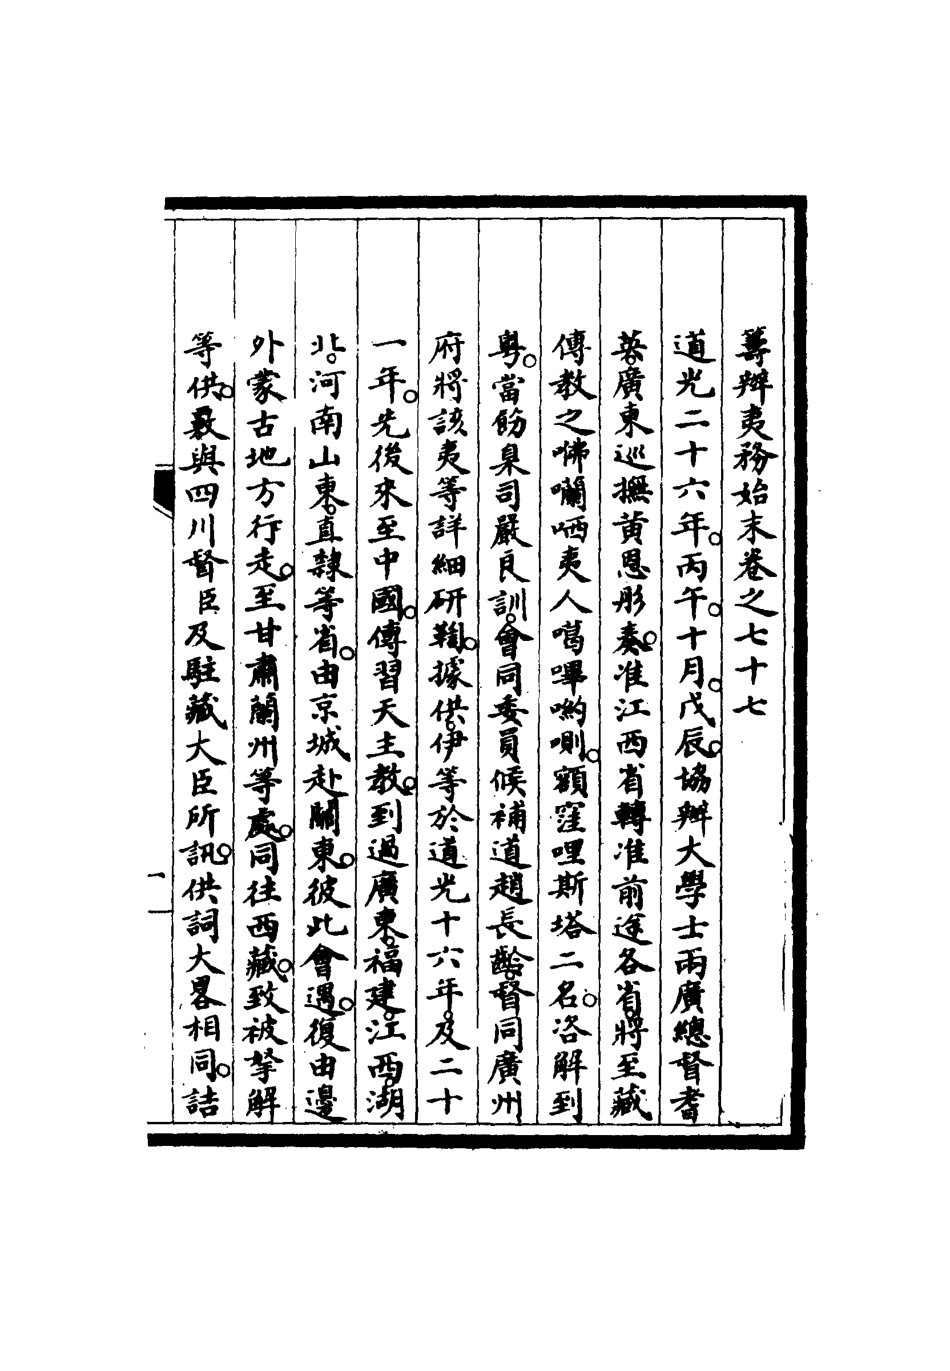 籌辦夷務始末卷之七十七
道光二十六年。丙午。十月。戊辰。協辦大學士兩廣總督耆
英。廣東巡撫黃恩彤奏。准江西省轉准前途各省。將至藏
傳教之咈囒哂夷人噶嗶喲唎。額窪哩斯塔二名。咨解到
粵。當飭臬司嚴良訓。會同委員候補道趙長齡。督同廣州
府將該夷等詳細研鞫。據供。伊等於道光十六年。及二十
一年。先後來至中國。傳習天主教。到過廣東。福建。江西。湖
北。河南山東。直隸等省。由京城赴關東。彼此會遇。復由邊
外蒙古地方行走。至甘肅蘭州等處。同往西藏。致被拏解
等供。覈與四川督臣及駐藏大臣所訊。供詞大畧相同。詰
一